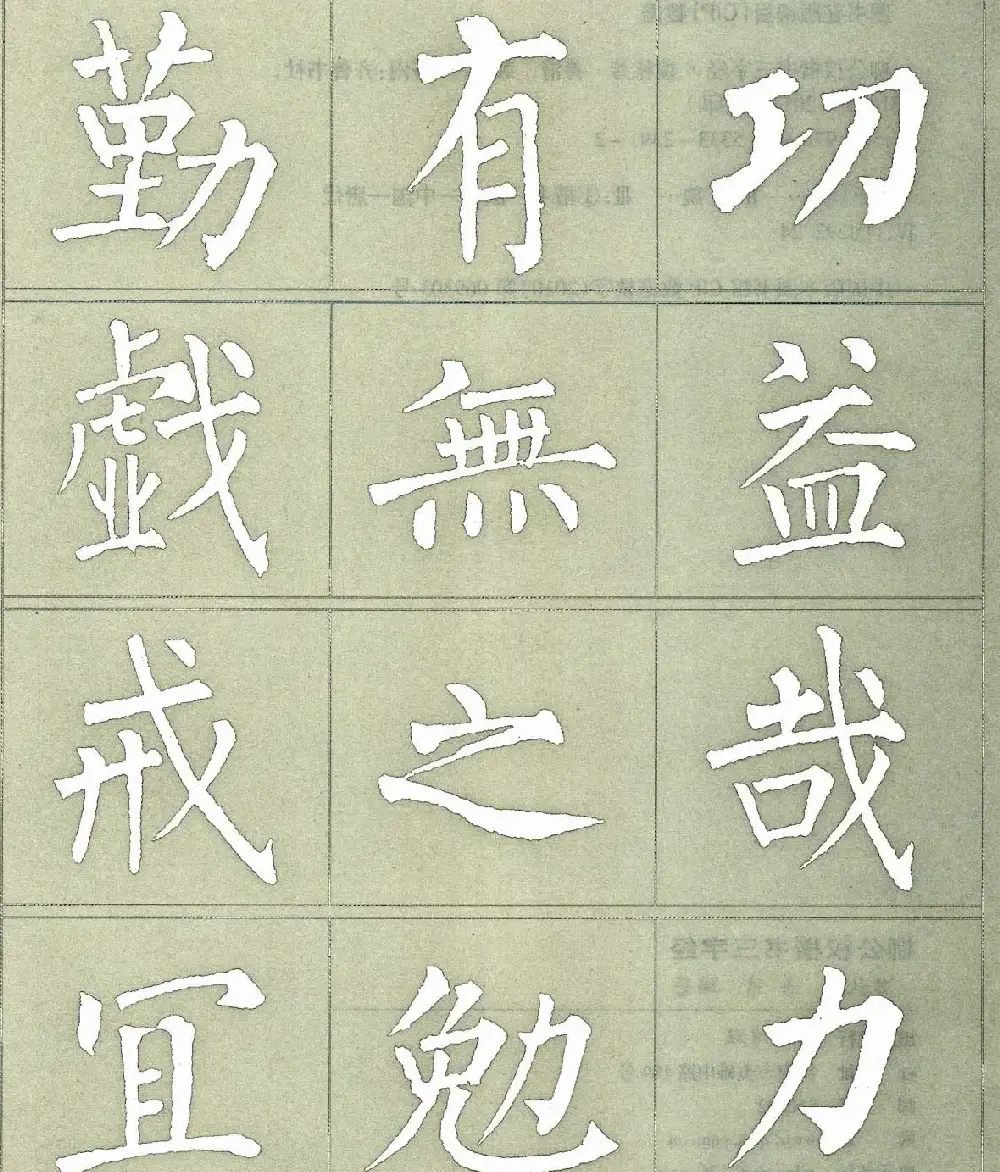 勤有功
戯無益
戒之哉
冝勉力